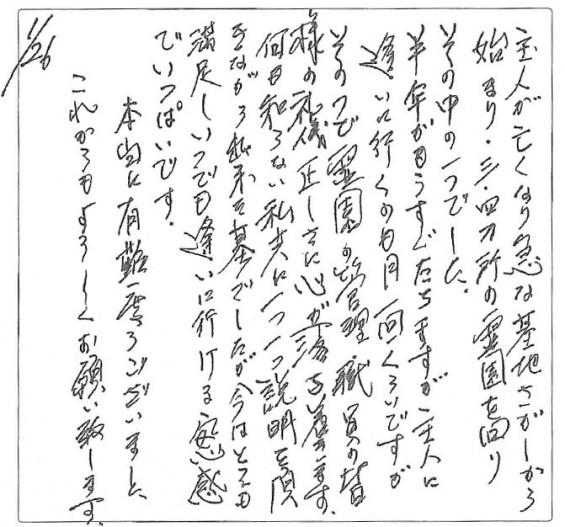 主人が亡くなり急な墓地さがしから
始まり・三・四カ所の霊園を回り
その中の一つでした。
半年がもうすぐたちますが主人に
逢いに行くのも月一回くらいですが
そのつど霊園の管理職員の皆
様の礼儀正しさに心が落ち着ます。
何も知らない私共に一つ一つ説明を頂
きながら出来た墓でしたが今はとても
満足しいつでも逢いに行ける安心感
でいっぱいです。
本当に有難度うございました。
これからもよろしくお願い致します。
1/26